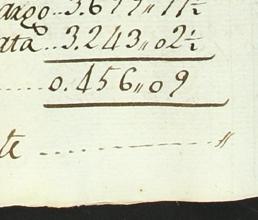 argo..3.699,,11½
ata..3.243,,02½
....0.456,,09
te ----------,,